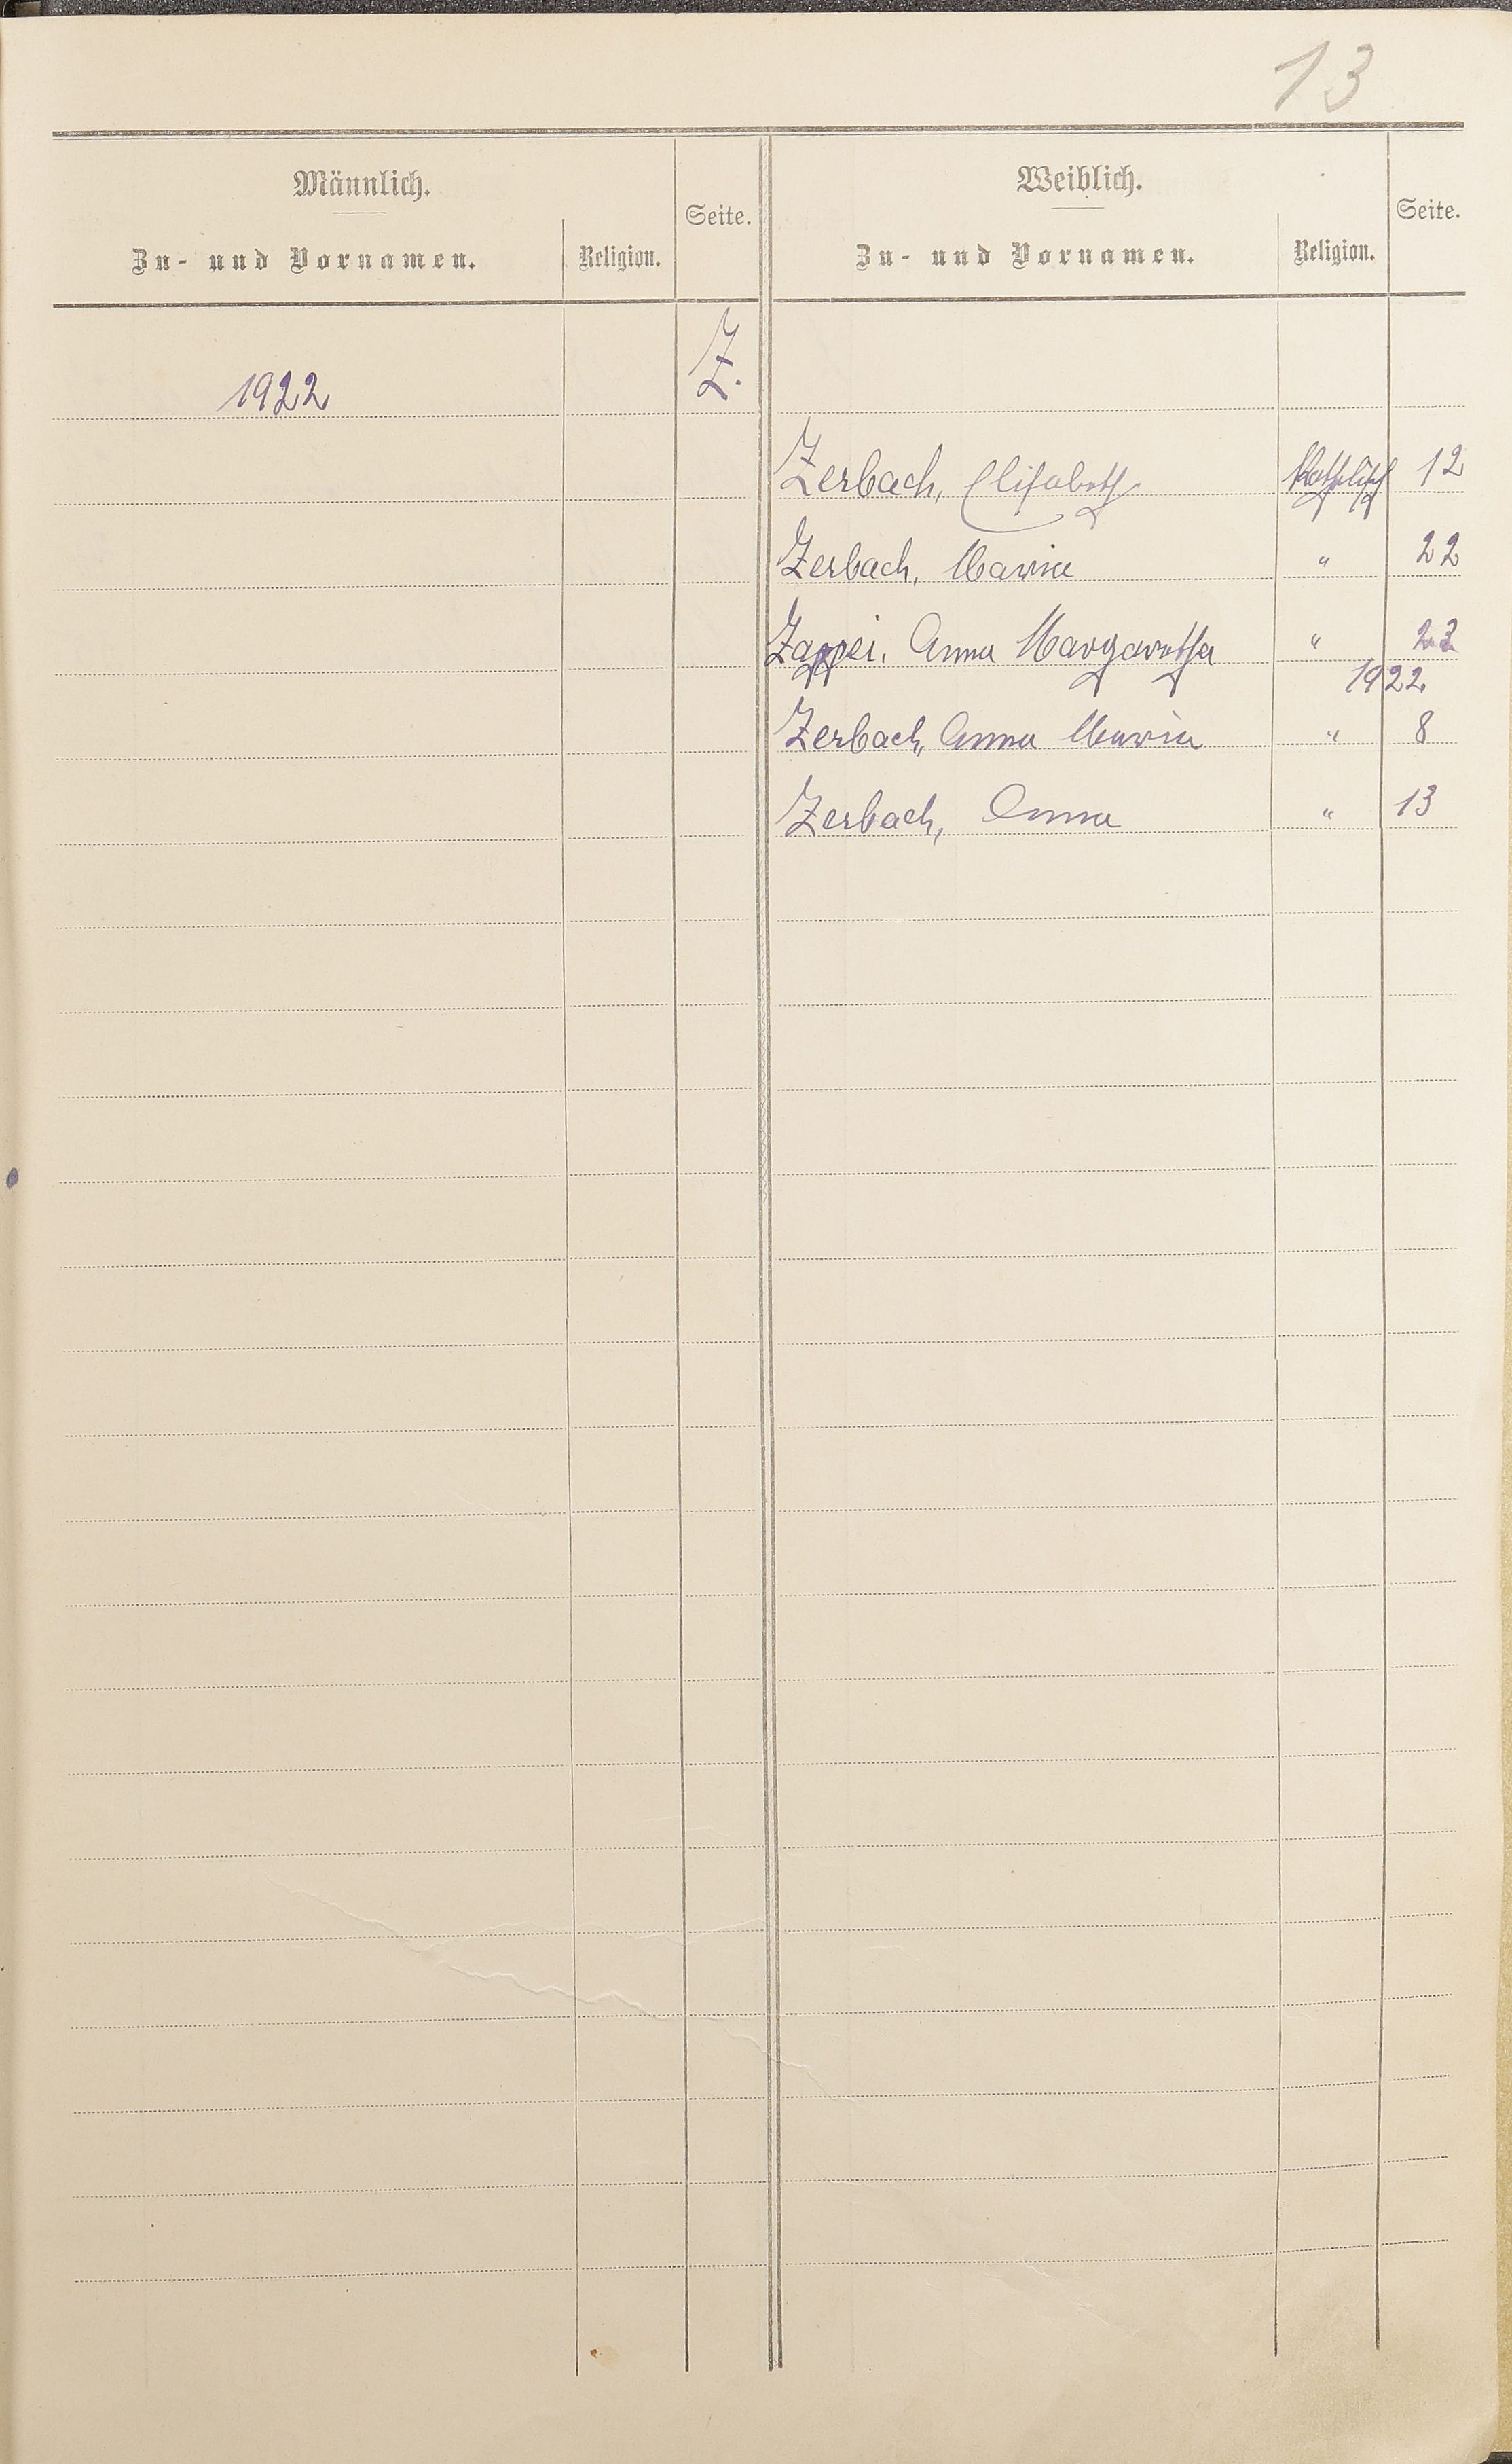 13
Männlich.
Zu- und Vornamen.
Religion.
Seite.
Weiblich.
Zu- und Vornamen.
Religion.
Seite.
1922
Z.
Zerbach, Elisabeth Katholisch 12
Zerbach, Maria " 22
Zappei, Anna Margaretha " 23
1922
Zerbach, Anna Maria " 8
Zerbach, Anna " 13